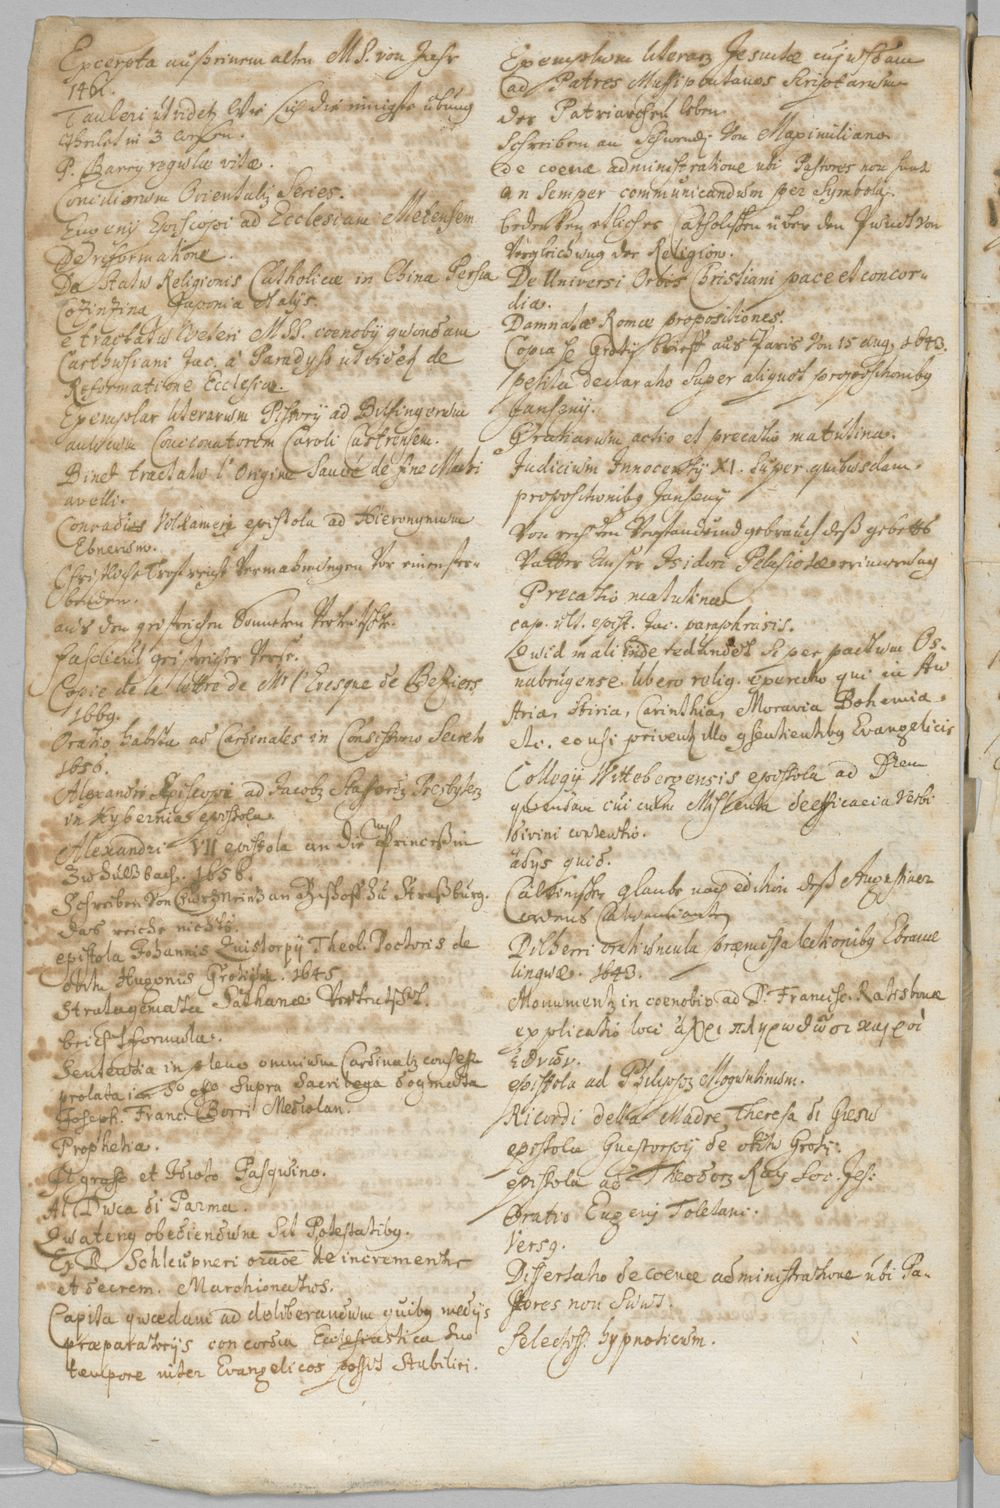 Excerpta auß einem alten M.S. von Jahr
146
Tauleri ut videtur Wie sich die einigste übung
theilet in 3
P. Barry regulæ vitæ.
Conciliorum Orientalium Series.
Eugenij Episcopi ad Ecclesiam Metensem
De reformatione.
De statu Religionis Catholicæ in China Persia
Cotzintzina Japonia et alijs.
e tractatu veteri MSS. coenobij quondam
Carthusiani Jac. à Paradyso ut videtur de
Reformatione Ecclesiæ.
Exemplar literarum Pistorij ad Bilfingerum
aulicum Concionatorem Caroli Castrensem.
Binet tractatu l'Origine
avelli.
Conradus Volkameri epistola ad Hieronymum
Ebnerum.
Christliche Trostreiche Vermahnungen vor einen ster-
benden.
aus den geistreichen Sonneten
fascicul geistreicher Verse.
Copie de la lettre de Mr l'Evesque de Beziers
1669.
Oratio habita ad Cardinales in Consistorio Secreto
1656.
Alexandri Episcopi ad Jacob Presbyter
in Hybernia epistola
Alexandri VII epistola an die Princeßin
Zu Sultzbach. 1656.
Schreiben von Churmeintz an Bischoff zu Straßburg.
das reiche nichts.
epistola Johannis Quistorpij Theol. Doctoris de
obitu Hugonis Grotij. 1645
Stratagemata Sathanæ Verteutscht.
beicht formula.
Sententia in pleno omnium Cardinalium consessu
prolata in supra sacrilega dogmata
Joseph. Franc. Borri Mediolan.
Prophetia.
Il graso et Idioto Pasquino.
Al Duca di Parma.
Quatenus obediendum sit Potestatibus.
Ex D. Schleupneri de incremento
et decrem. Marchionatus.
Capita quædam ad deliberandum quibus medijs
præparatorijs concordia Ecclesiastica suo
tempore inter Evangelicos possit stabiliri.
Exemplum literarum Jesuitæ cujusdam
ad Patres Mussipontanos scriptarum
der Patriarchen leben
Schreiben an Schwendi von Maximiliano
de coenæ administratione ubi Pastores non sunt
an semper communicandum per Symbola.
bedencken etlicher Catholischen über den von
Vergleichung der Religion.
De Universi Orbis Christiani pace et concor-
dia.
Damnatæ Romæ propositiones.
Copia Grotij brieff aus Paris von 15 aug. 1643.
petita declaratio super aliquot propositionibus
Jansenij.
Gratiarum actio et precatio matutina.
Judicium Innocentij XI. super quibusdam
propositionibus Jansenij
Von rechten Verstand und gebrauch deß gebetts
Vatter Unser Isidori Pelusiotæ erinnerung
Precatio matutina
cap. ult. epist. Jac. paraphrasis.
Quid mali inde redundet si per pactum Os-
nabrugense libero relig. exercitio qui in Au
stria, Stiria, Carinthia, Moravia Bohemia
etc. eousi priventur illo consentientibus Evangelicis
Collegij Wittebergensis epistola ad
quendam cui cum Mislenta de efficacia Verbi
divini contentio.
abys quid.
Calvinischer glaube nach edition deß Augustiner

Dilherri oratiuncula præmissa lectionibus Ebraicæ
linguæ. 1643.
Monumenta in coenobio ad D. Francisc. Ratisbonæ
explicatio loci ἄχρι πληρωθῶσι καιροὶ
ἐθνῶν.
epistola ad Philippum Moguntinum.
Ricordi della Madre Theresa di Giesu
epistola Quistorpij de obitu Grotij.
epistola ad Theodor Ray Soc. Jes:
Oratio Eugenij Toletani.
Versus.
Dissertatio de coenæ administratione ubi Pa-
stores non sunt.
Selectiss. hypnoticum.